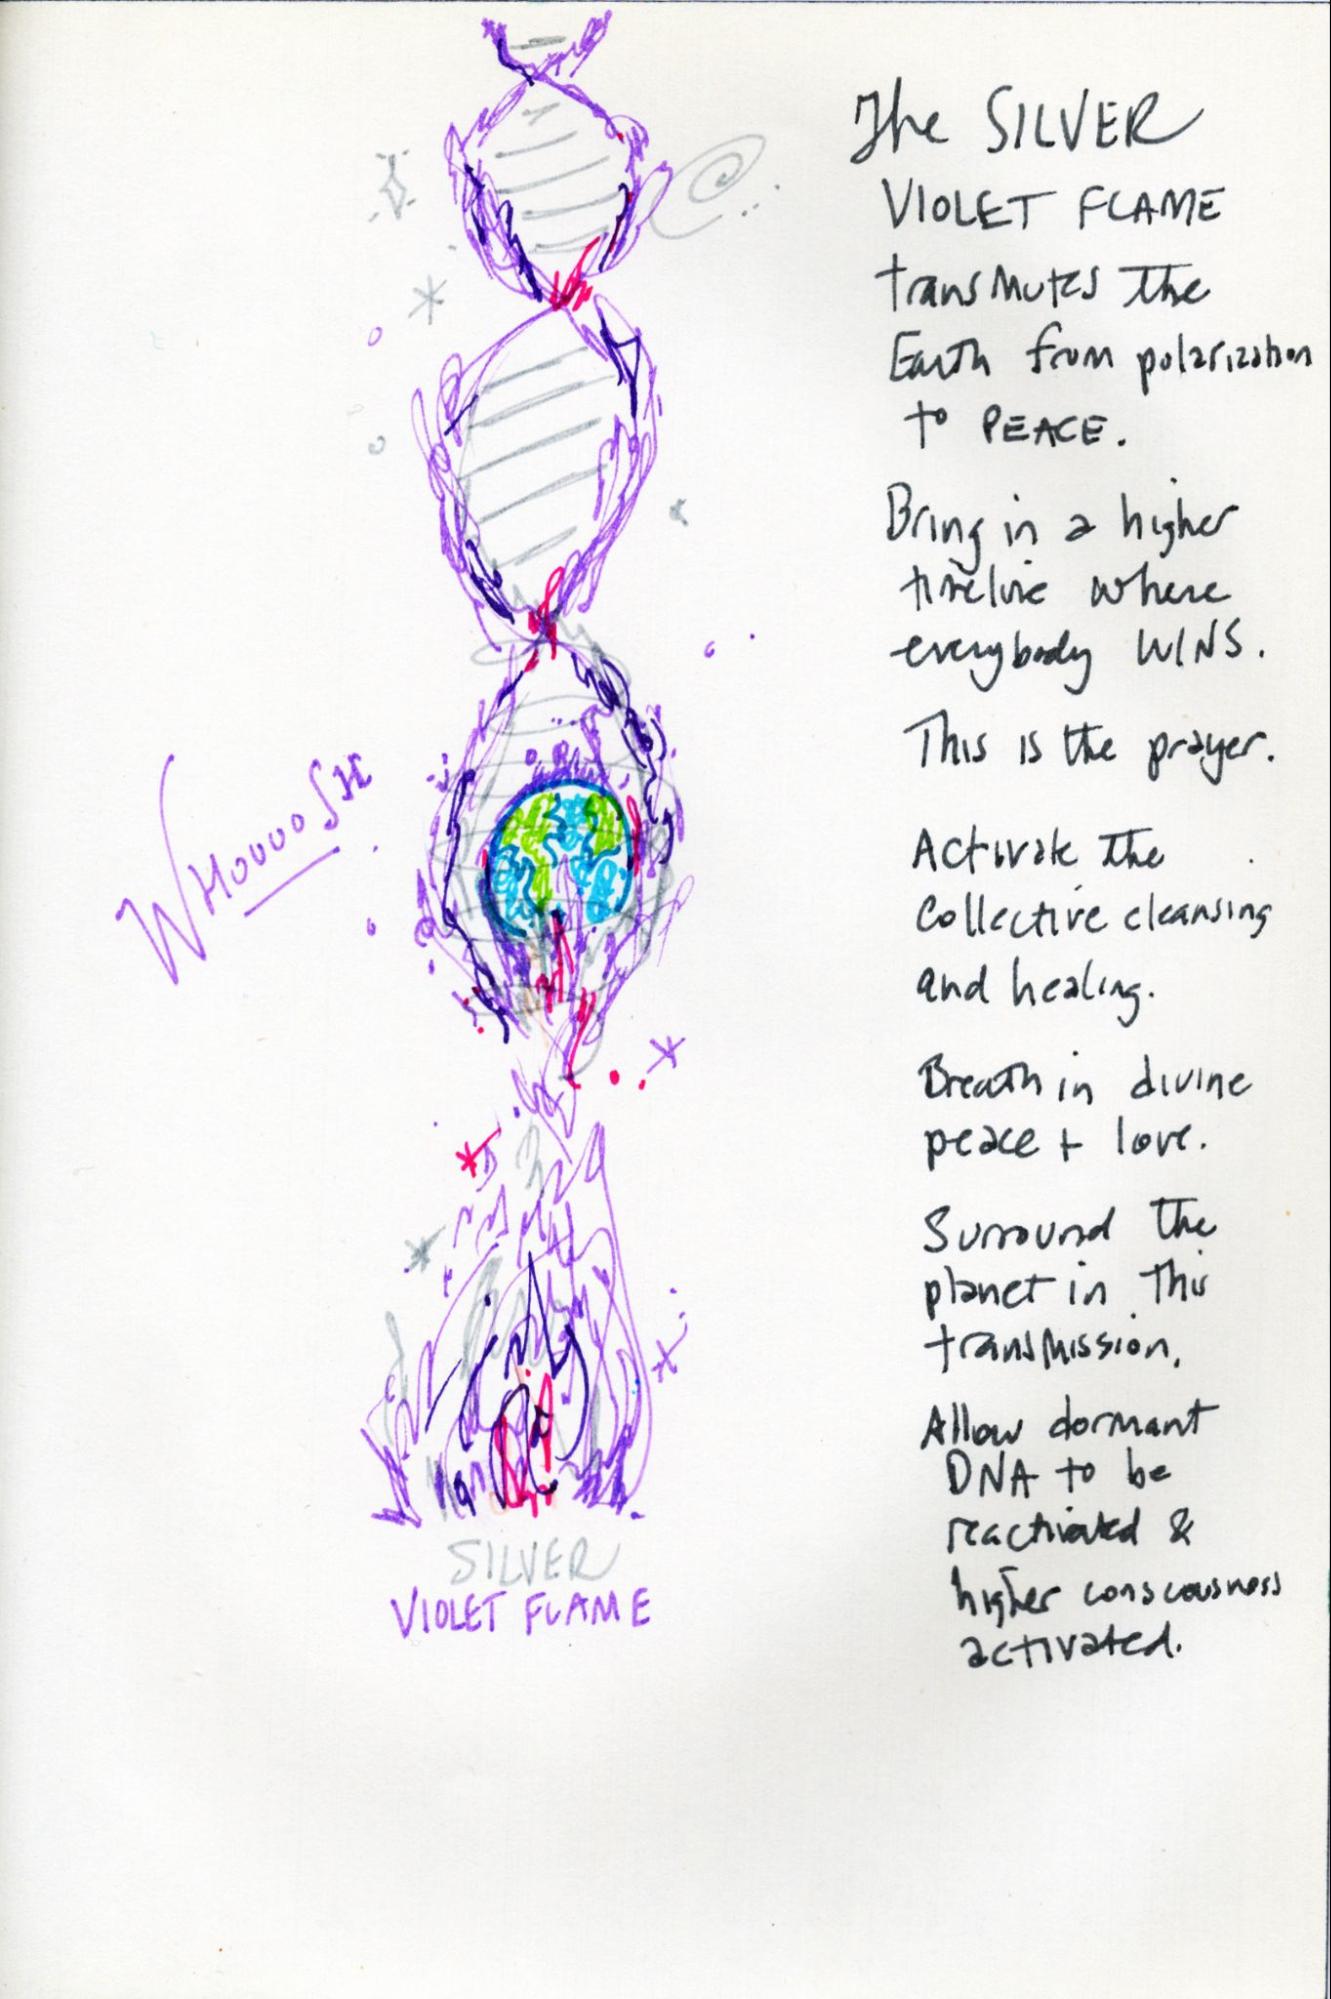 The SILVER
VIOLET FLAME
transmutes the
Earth from polarization
to PEACE.
Bring in a higher
timeline where
everybody WINS.
This is the prayer.
Activate the
Collective cleansing
and healing.
Breath in divine
peace + love.
Surround the
planet in this
transmission.
Allow dormant
DNA to be
reactivated &
higher consciousness
activated.
WHOUUOSH
SILVER
VIOLET FLAME